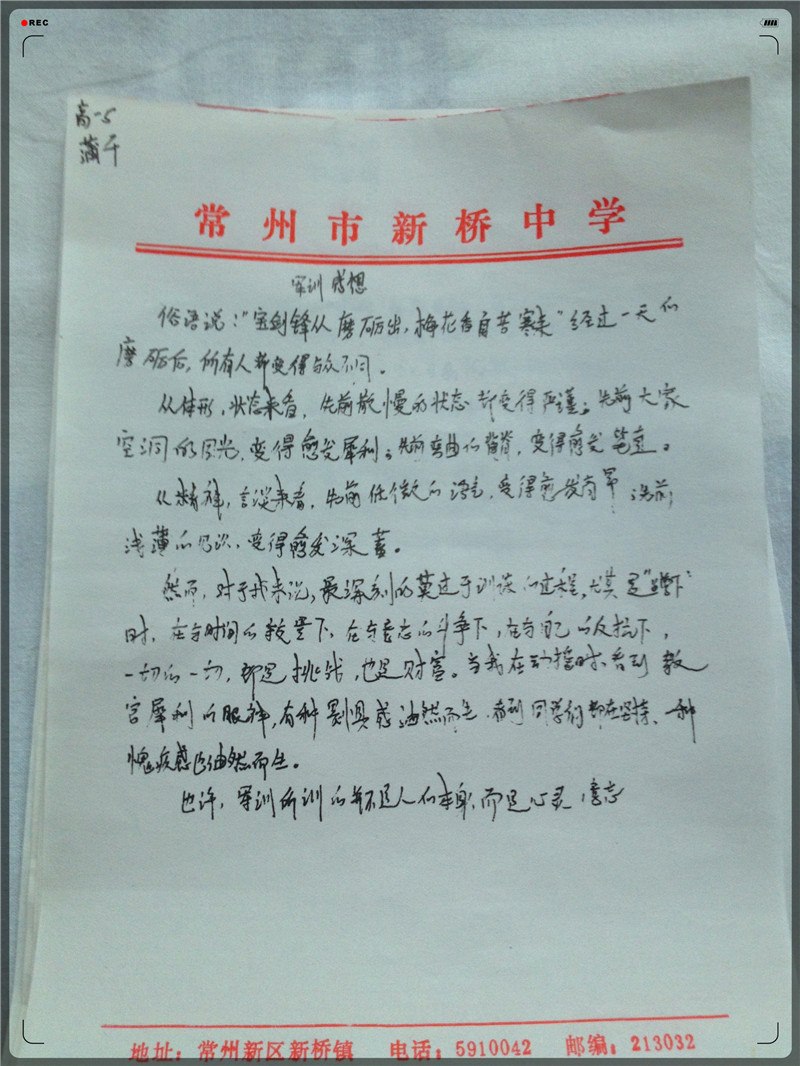 REC
高一5
蒲千
常州市新桥中学
军训感想
俗语说："宝剑锋从磨砺出，梅花香自苦寒来"经过一天的
磨砺后，所有人都变得与众不同。
从体形，状态来看，先前散慢的状态都变得严谨；先前大家
空洞的目光，变得愈发犀利；先前弯曲的背脊，变得愈发笔直。
从精神，言谈来看，先前低微的语气，变得愈发高昂 先前
浅薄的见识，变得愈发深蓄。
然而，对于我来说，最深刻的莫过于训练的过程，尤其是"蹲下"
时，在与时间的较量下，在与意志的斗争下，在与自己的反抗下，
一切的一切，都是挑战，也是财富。当我在动摇时，看到教
官犀利的眼神，有种畏惧感油然而生，看到同学们都在坚持、一种
愧疚感又油然而生。
也许，军训所训的并不是人的本身，而是心灵，意志
地址：常州新区新桥镇 电话：5910042 邮编：213032